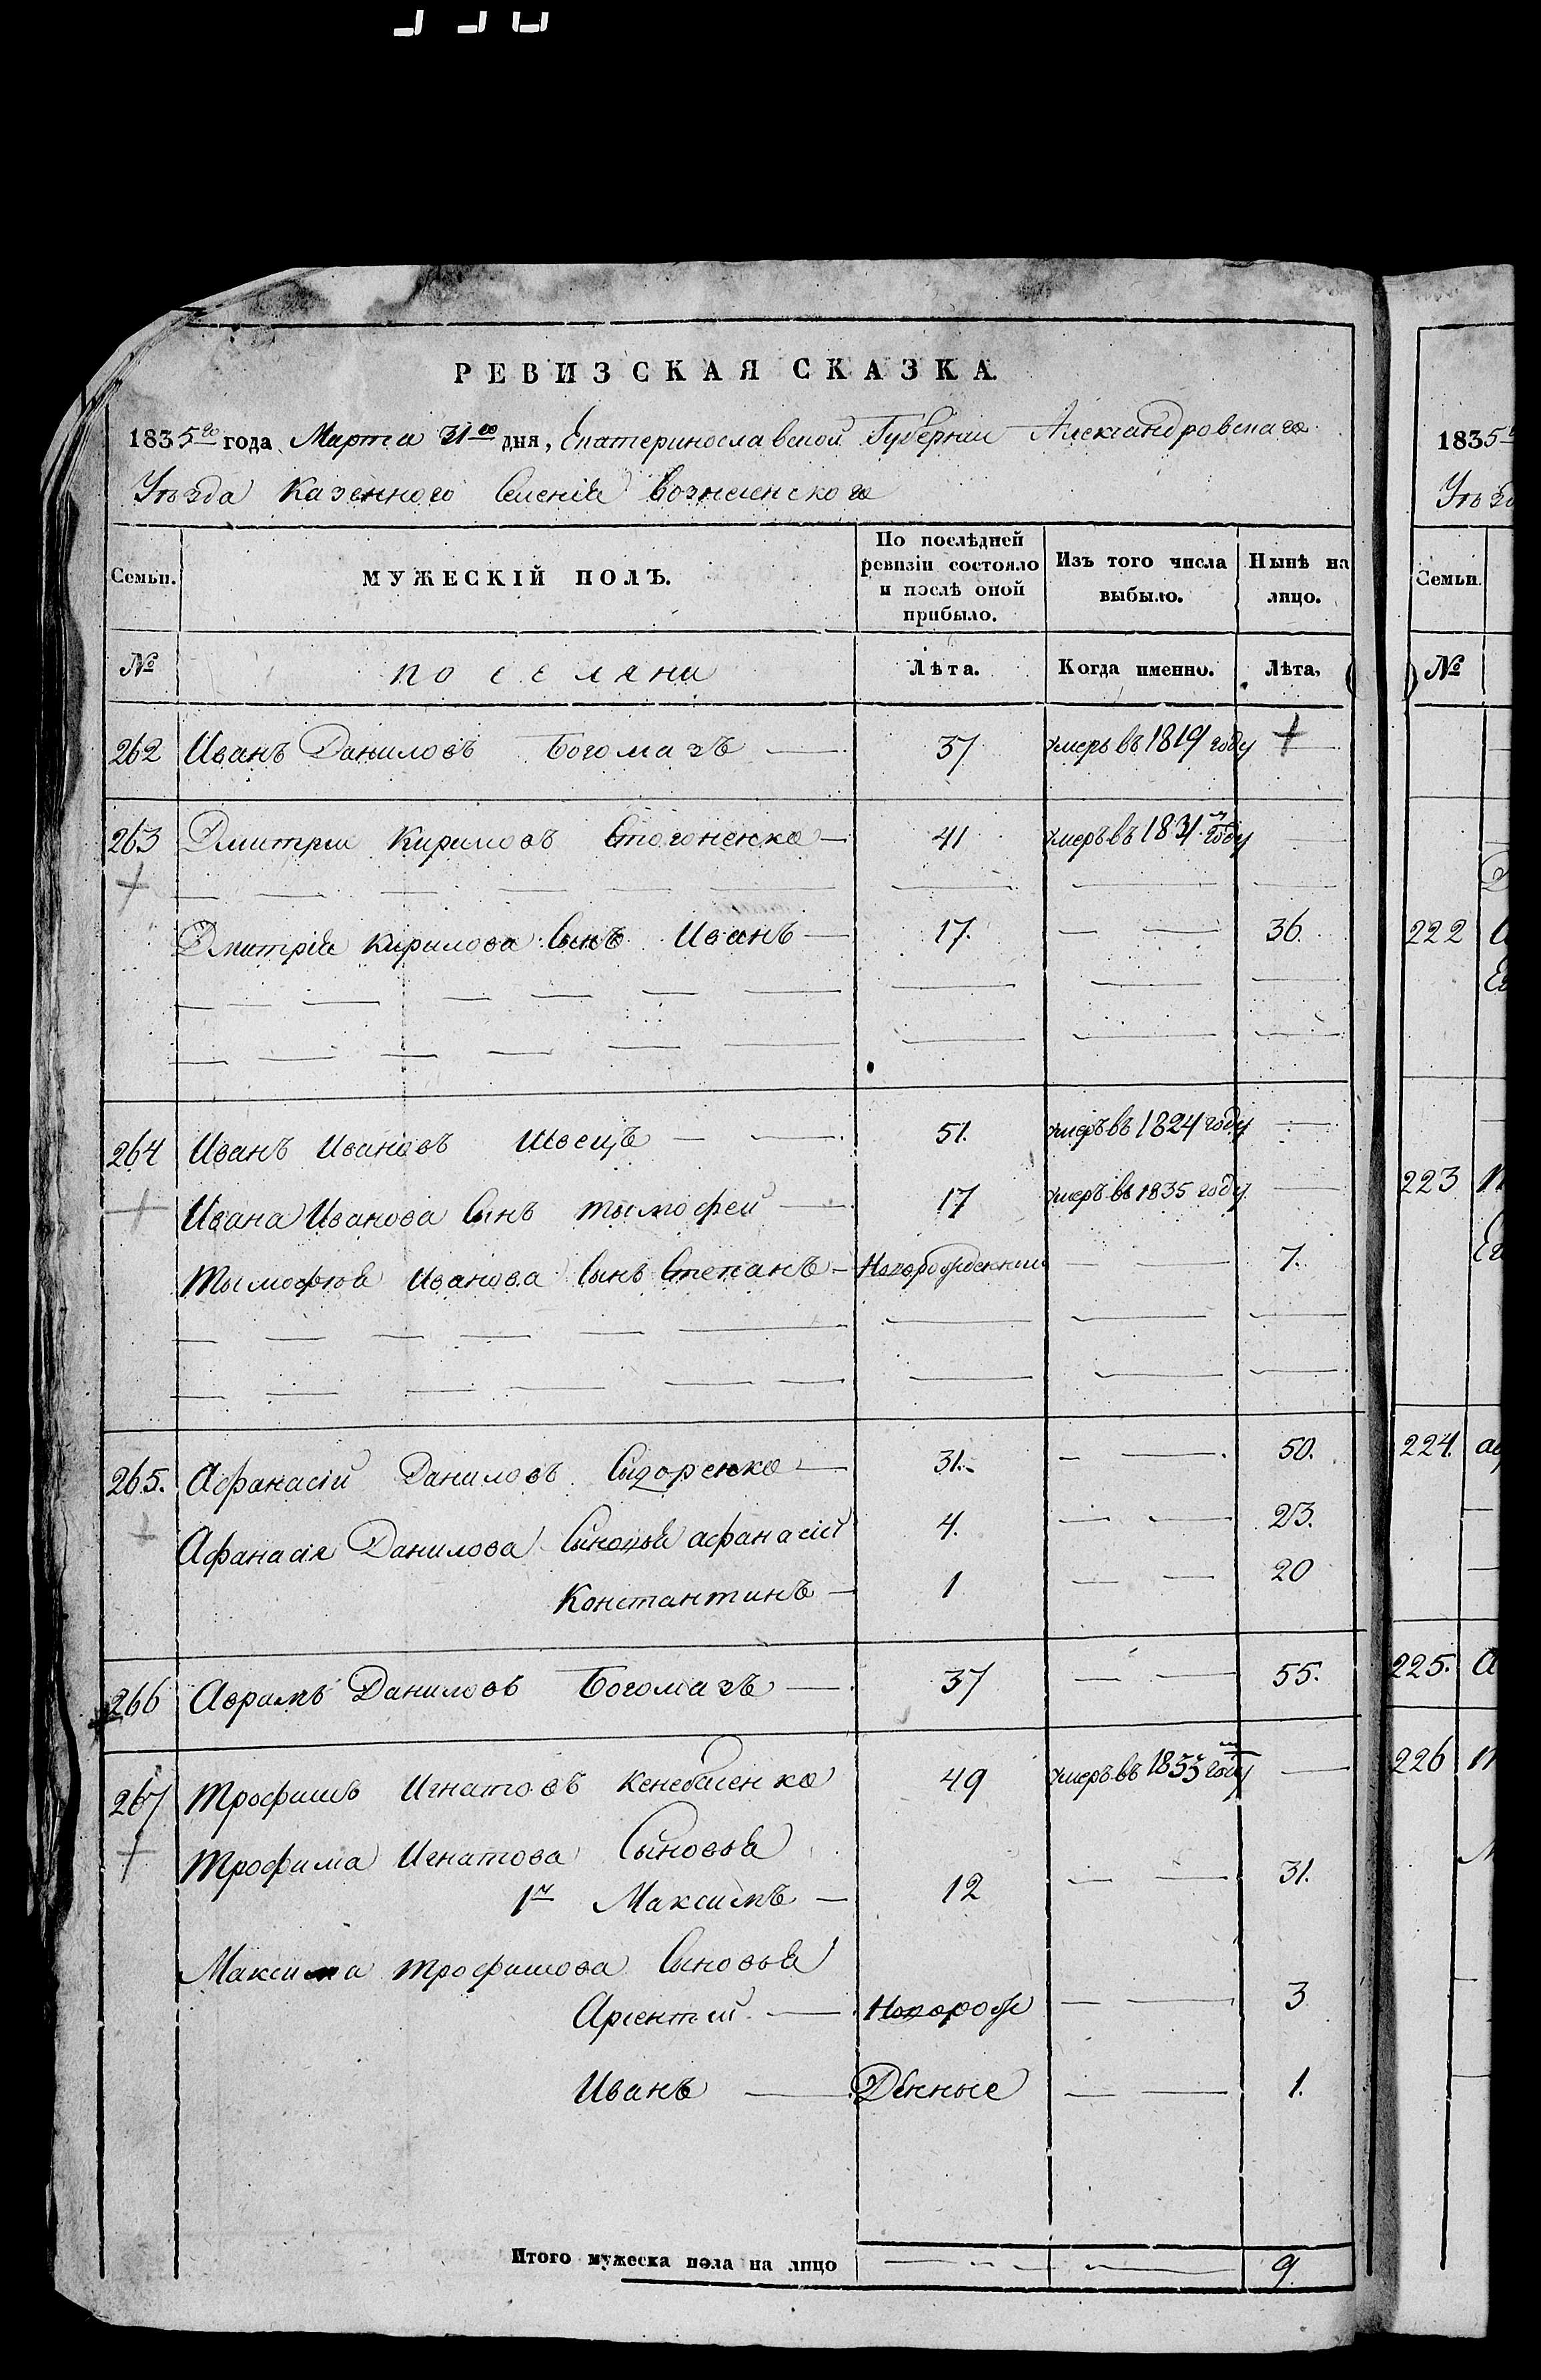 РЕВИЗСКАЯ СКАЗКА.
1835го года Марта 31го дня, Екатеринославской Губернии Александровскаго
Уѣзда Казенного Селенія Вознесенского
Семьи. МУЖЕСКІЙ ПОЛЪ. По послѣдней ревизіи состояло и послѣ оной прибыло. Изъ того числа выбыло. Нынѣ на лицо.
№ поселяни Лѣта. Когда именно. Лѣта,
262 Иванъ Даниловъ Богомазъ — 37 умеръ въ 1819 году +
263 Дмитрии Кириловъ Стогоненко — 41 умеръ въ 1831м году —
+
Дмитрія Кирилова Сынъ Иванъ — 17. — — 36.
264 Иванъ Ивановъ Швецъ — — 51. умеръ въ 1824 году —
+ Ивана Иванова Сынъ Тымофей — 17 умеръ въ 1835 году —
Тымофѣя Иванова Сынъ Степанъ — Новорожденний — — 7.
265. Афанасій Даниловъ Сидоренко — 31. — — 50.
+ Афанасія Данилова Сыновья афанасій 4. — — 23.
Константинъ — 1 — — 20
266 Аврамъ Даниловъ Богомазъ — 37 — — 55.
267 Трофимъ Игнатовъ 49 умеръ въ 1833м году —
+ Трофима Игнатова Сыновья
1й Максимъ — 12 — — 31.
Максима Трофимова Сыновья
Арсентий — Новорож — — 3
Иванъ — Денные — — 1.
Итого мужеска пола на лицо — — — 9.
1835
Уѣзд
Семьи.
№
222
223
224.
225.
226